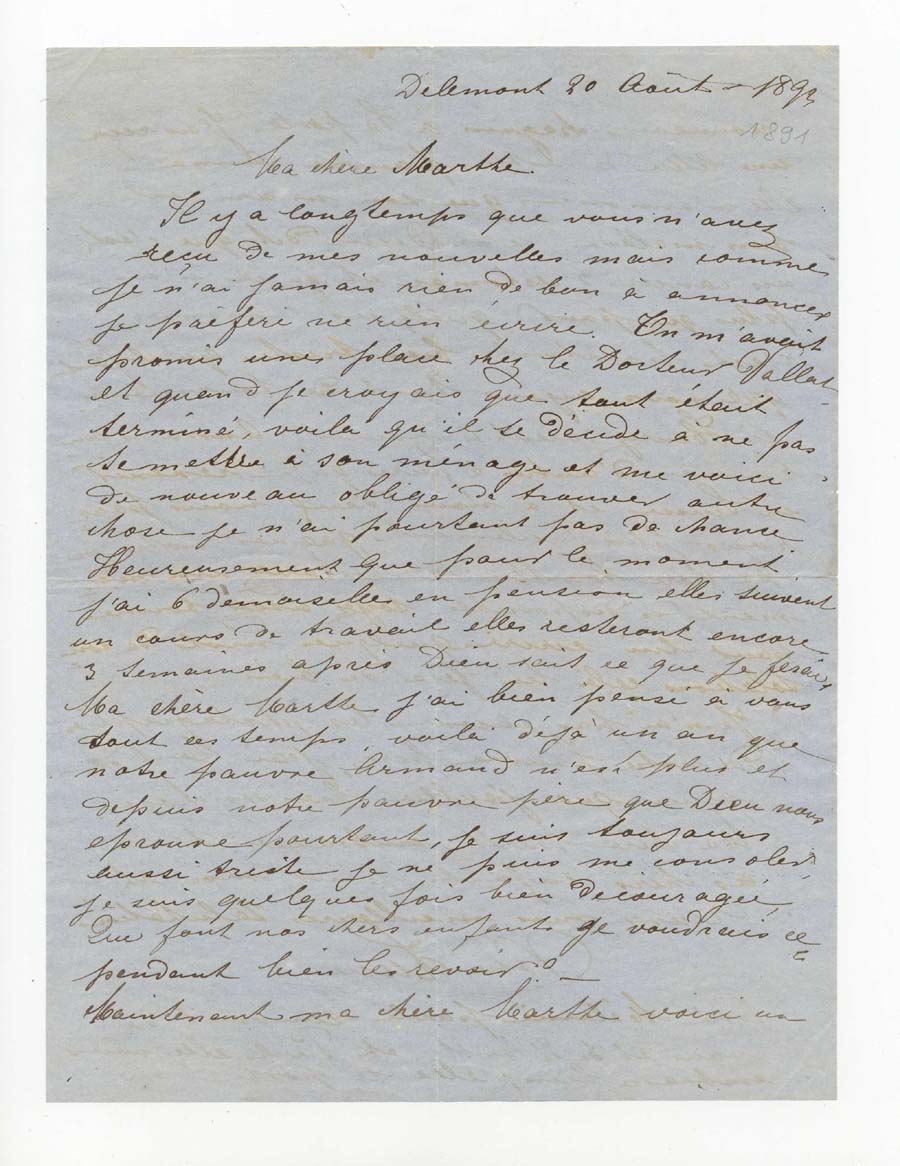 Delemont 20 Août - 1892
1891
Ma chère Marthe.
Il y a longtemps que vous n'avez
reçu de mes nouvelles mais comme
je n'ai jamais rien de bon à annoncer
je préferè ne rien écrire. On m'avait
promis une place chez le Docteur Vallat
et quand je croyais que tout était
terminé, voila qu'il se décide à ne pas
se mettre à son ménage et me voici
de nouveau obligé de trouver autre
chose je n'ai pourtant pas de chance
Heureusement que pour le moment
j'ai 6 demoiselles en pension elles suivent
un cours de travail elles resteront encore
3 semaines après Dieu sait ce que je ferai,
Ma chère Marthe j'ai bien pensé à vous
tout ces temps, voilà déjà un an que
notre pauvre Armand n'est plus et
depuis notre pauvre père que Dieu nous
eprouve pourtant, je suis toujours
aussi triste je ne puis me consoler,
je suis quelques fois bien découragée,
Que font nos chers enfants je voudrais ce
pendant bien les revoir
Maintenant ma chère Marthe voici un